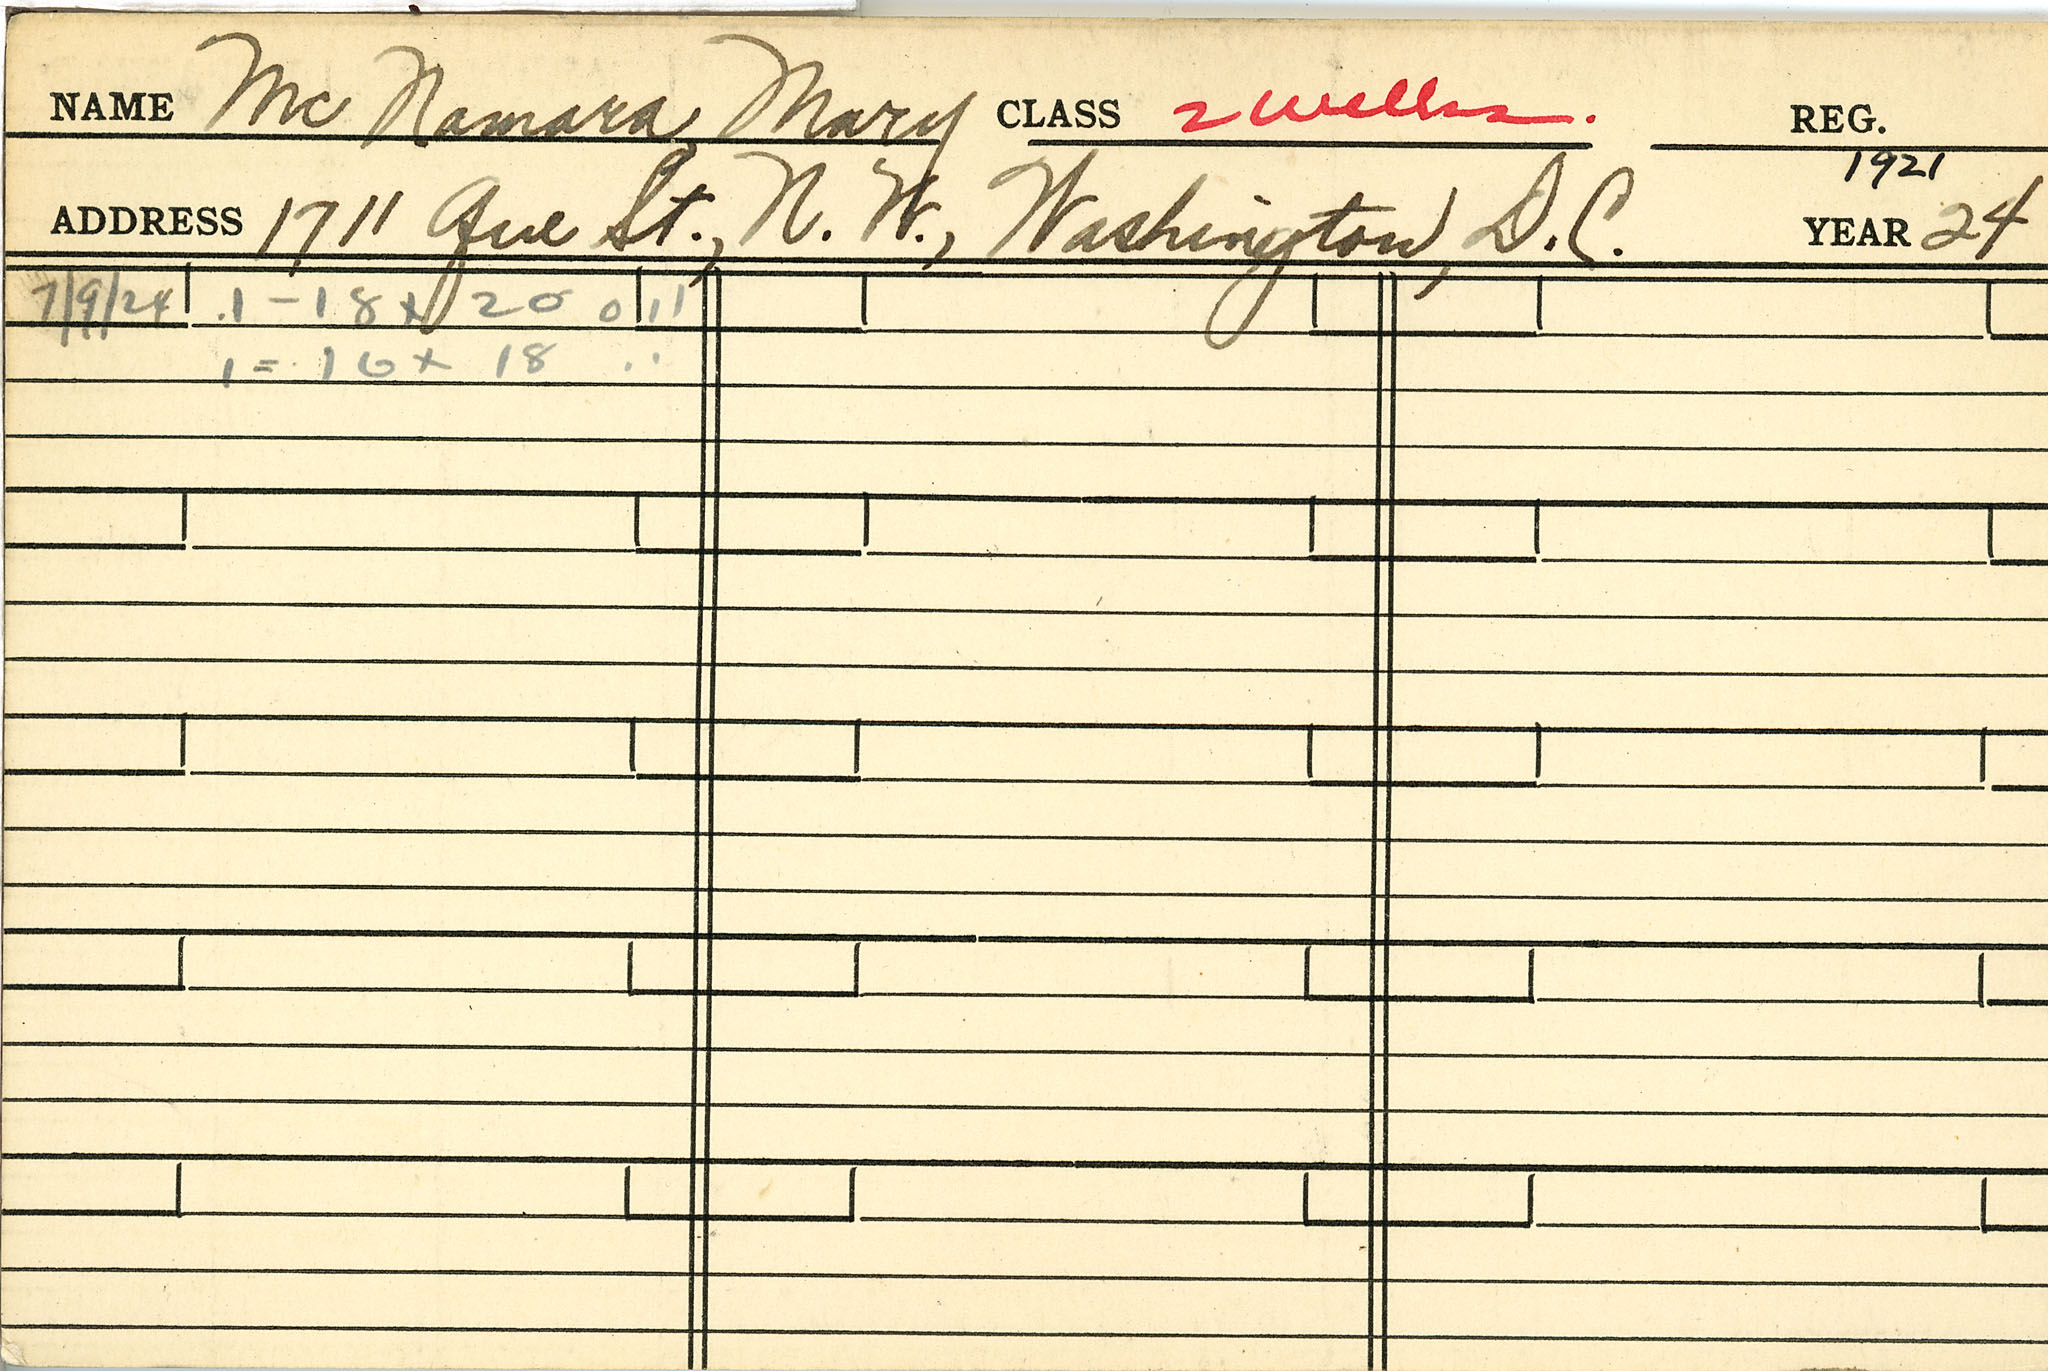 NAME Mc Namara, Mary CLASS 2 wells. REG.
1921
ADDRESS 1711 Que St., N. W., Washington, D. C. YEAR 24
7/9/24 1 - 18 x 20
1 = 16 x 18